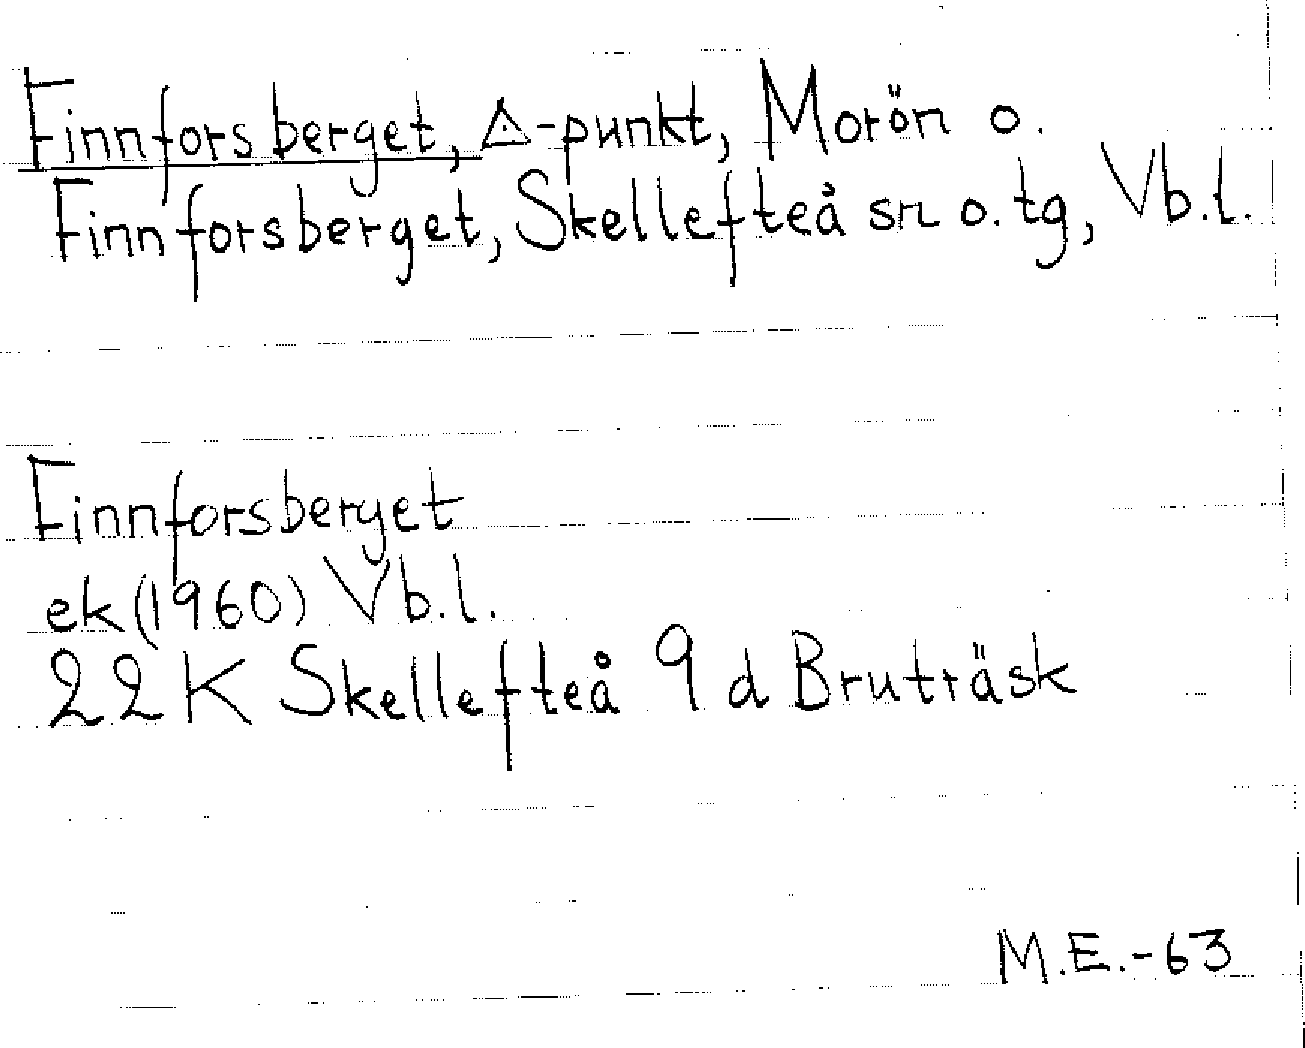 Finnforsberget, △-punkt, Morön o.
Finnforsberget, Skellefteå sn o. tg, Vb.l.
Finnforsberget
ek (1960) Vb.l.
22K Skellefteå 9d Bruträsk
M.E.-63